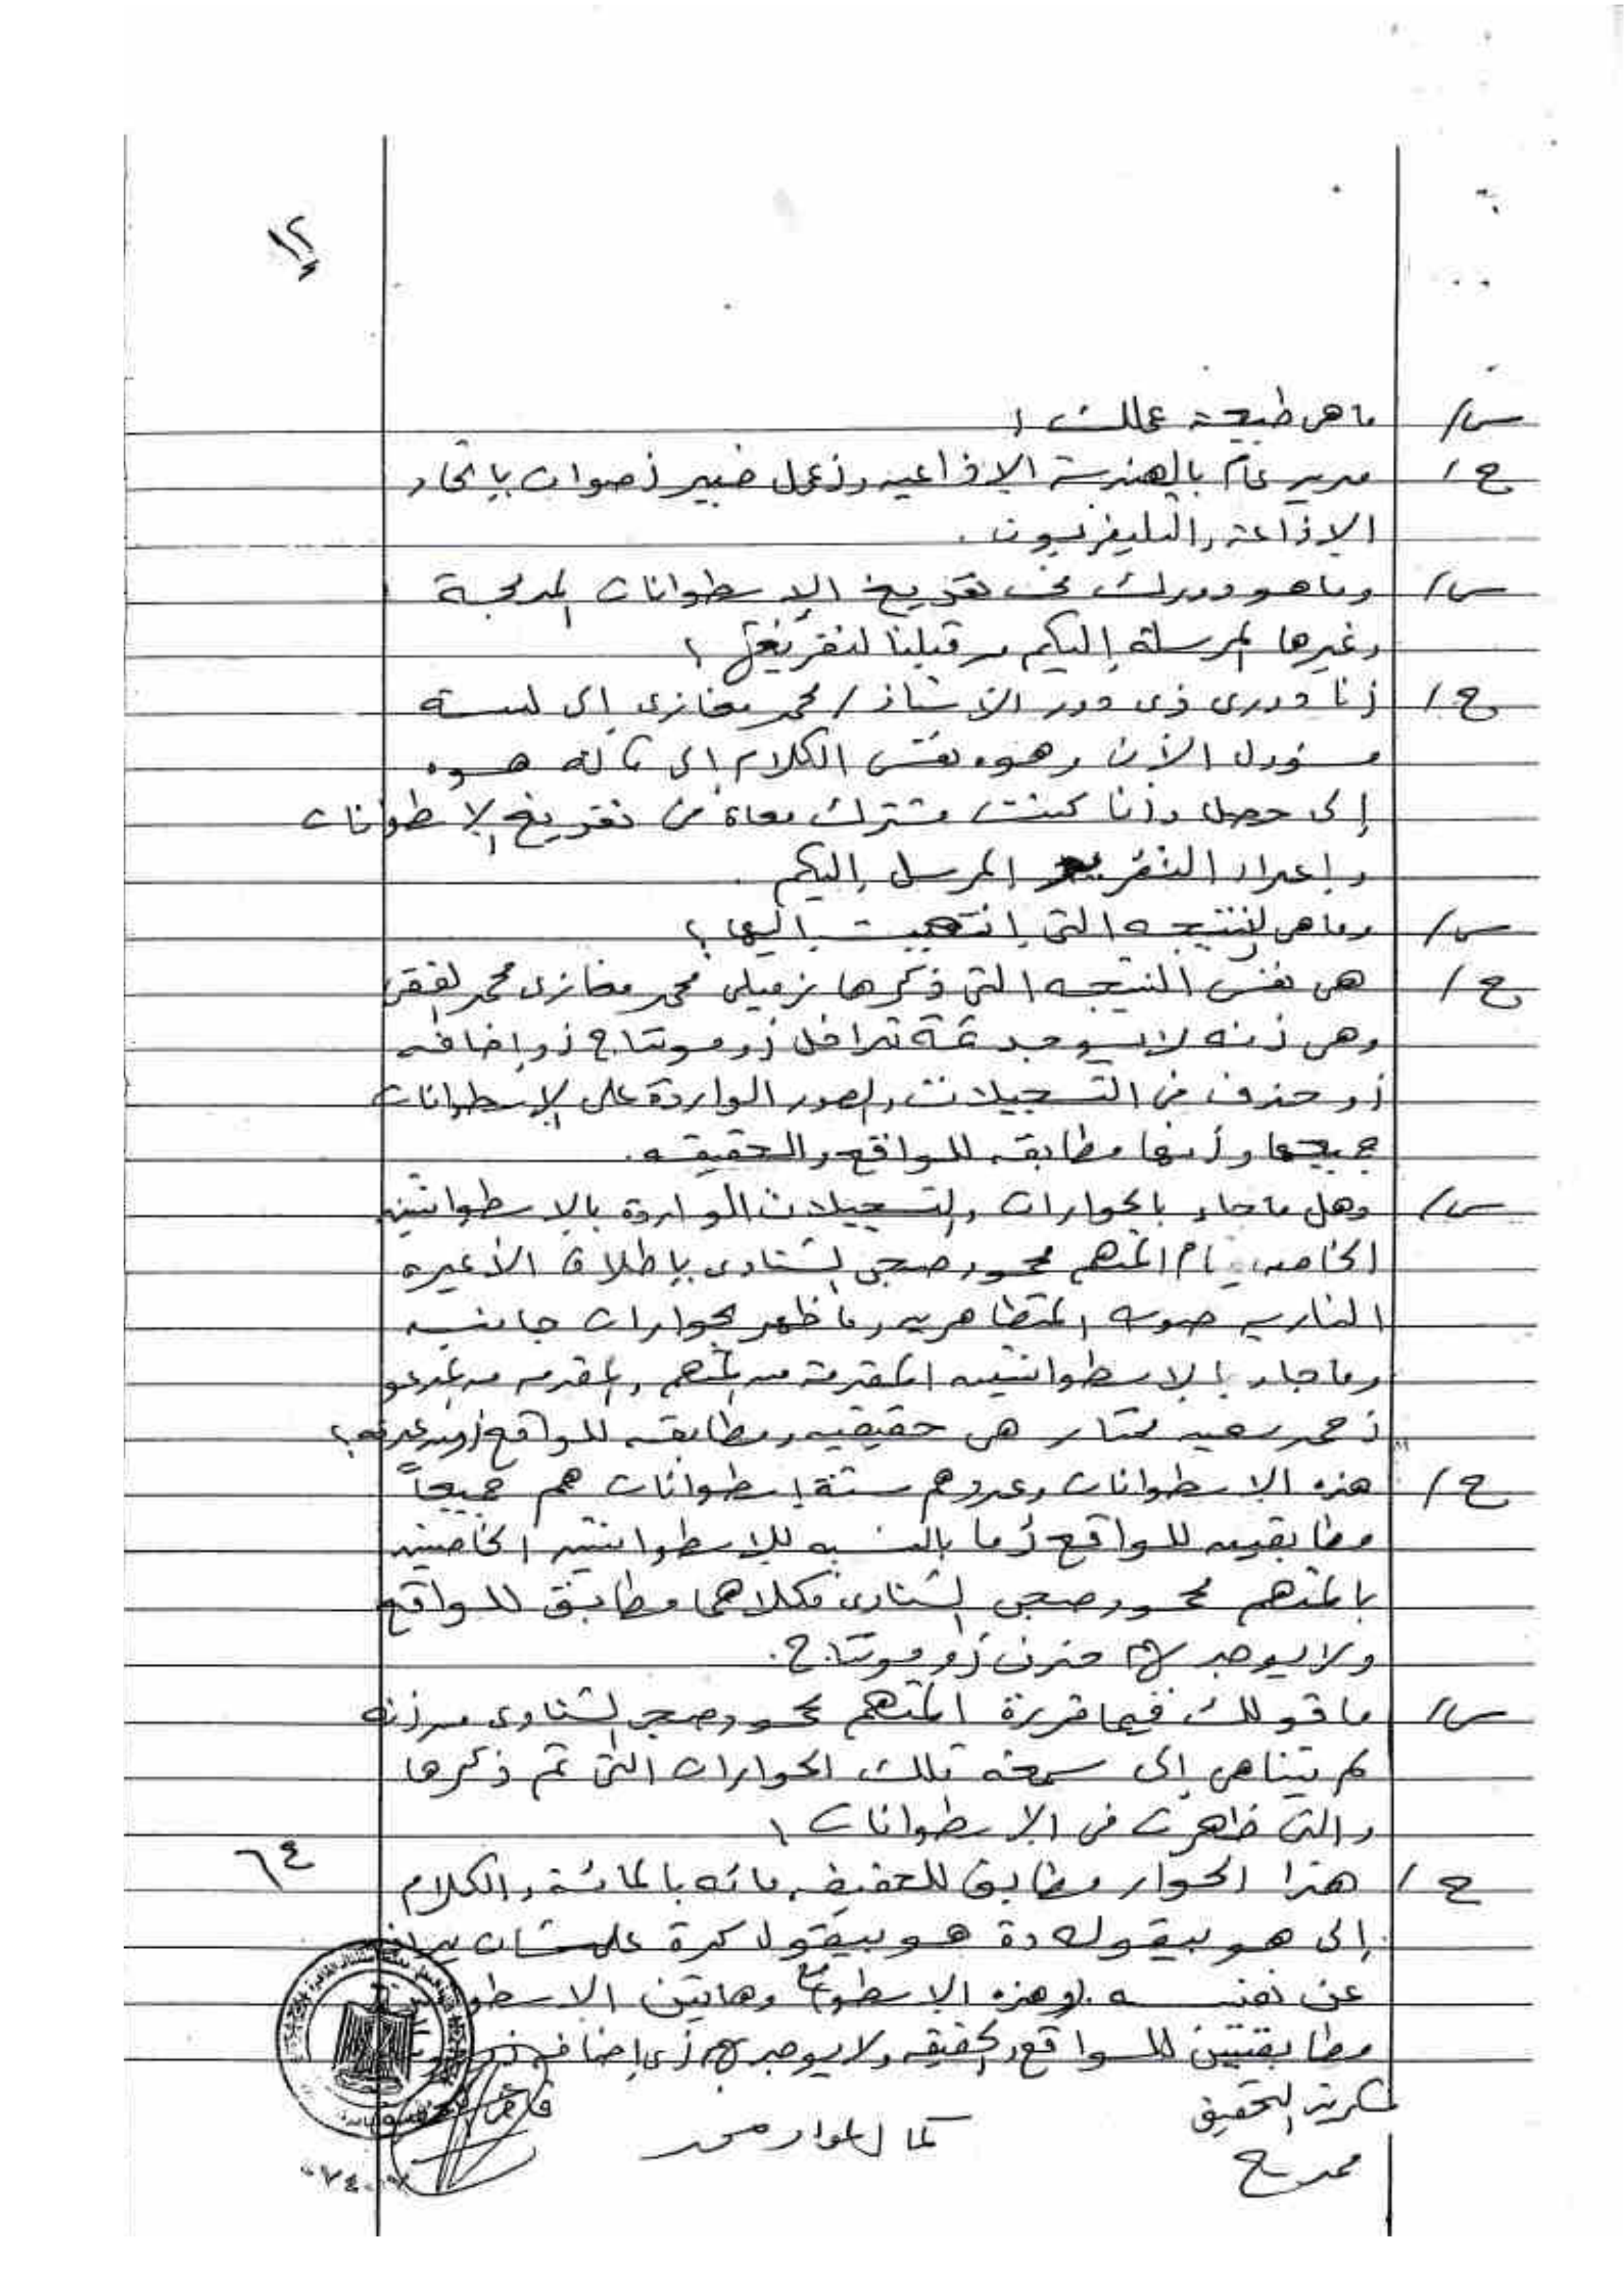 ١٢
س/ ما هى طبيعة عملك ؟
ج/ مدير عام بالهندسة الإذاعيه وأعمل خبير أصوات بإتحاد
الإذاعة والتليفزيون .
س/ وما هو دورك فى تفريغ الإسطوانات المدمجة
وغيرها المرسلة إليكم من قبلنا لتفريغها ؟
ج/ أنا دورى زى دور الأستاذ / محمد مغازى إلى لسه
مسئول الآن وهوه نفس الكلام إلى قاله هوه
إلى حصل وأنا كنت مشترك معاه فى تفريغ الإسطوانات
وإعداد التقرير المرسل إليكم .
س/ وما هى النتيجه التى إنتهيت إليها ؟
ج/ هى نفس النتيجه التى ذكرها زميلى محمد مغازى محمد الفقى
وهى أنه لا يوجد ثمة تداخل أو مونتاج أو إضافه
أو حذف فى التسجيلات والصور الواردة على الإسطوانات
جميعها وأنها مطابقه للواقع والحقيقه .
س/ وهل ما جاء بالحوارات والتسجيلات الواردة بالإسطوانتين
الخاصه بقيام المتهم محمود صبحى الشناوى بإطلاق الأعيره
الناريه صوب المتظاهرين وما ظهر بحوارات جانبيه
وما جاء بالإسطوانتين المقدمة من المتهم والمقدمه من المدعو
أحمد سعيد مختار هى حقيقيه ومطابقه للواقع أو من عدمه ؟
ج/ هذه الإسطوانات وعددهم ستة إسطوانات هم جميعاً
مطابقين للواقع أما بالنسبه للإسطوانتين الخاصين
بالمتهم محمود صبحى الشناوى فكلاهما مطابق للواقع
ولا يوجد بهم حذف أو مونتاج .
س/ ما قولك فيما قرره المتهم محمود صبحى الشناوى من أنه
لم يتناهى إلى سمعه تلك الحوارات التى تم ذكرها
والتى ظهرت فى الإسطوانات ؟
ج/ هذا الحوار مطابق للحقيقه مائه بالمائة والكلام
٦٤
إلى هو بيقوله دة هو بيقول كدة علشان يدافع
عن نفسه . وهذه الإسطوانات وهاتين
مطابقتين للواقع والحقيقه ولا يوجد بهم أى إضافه
سكرتير التحقيق
قاضى التحقيق
كمال محمد